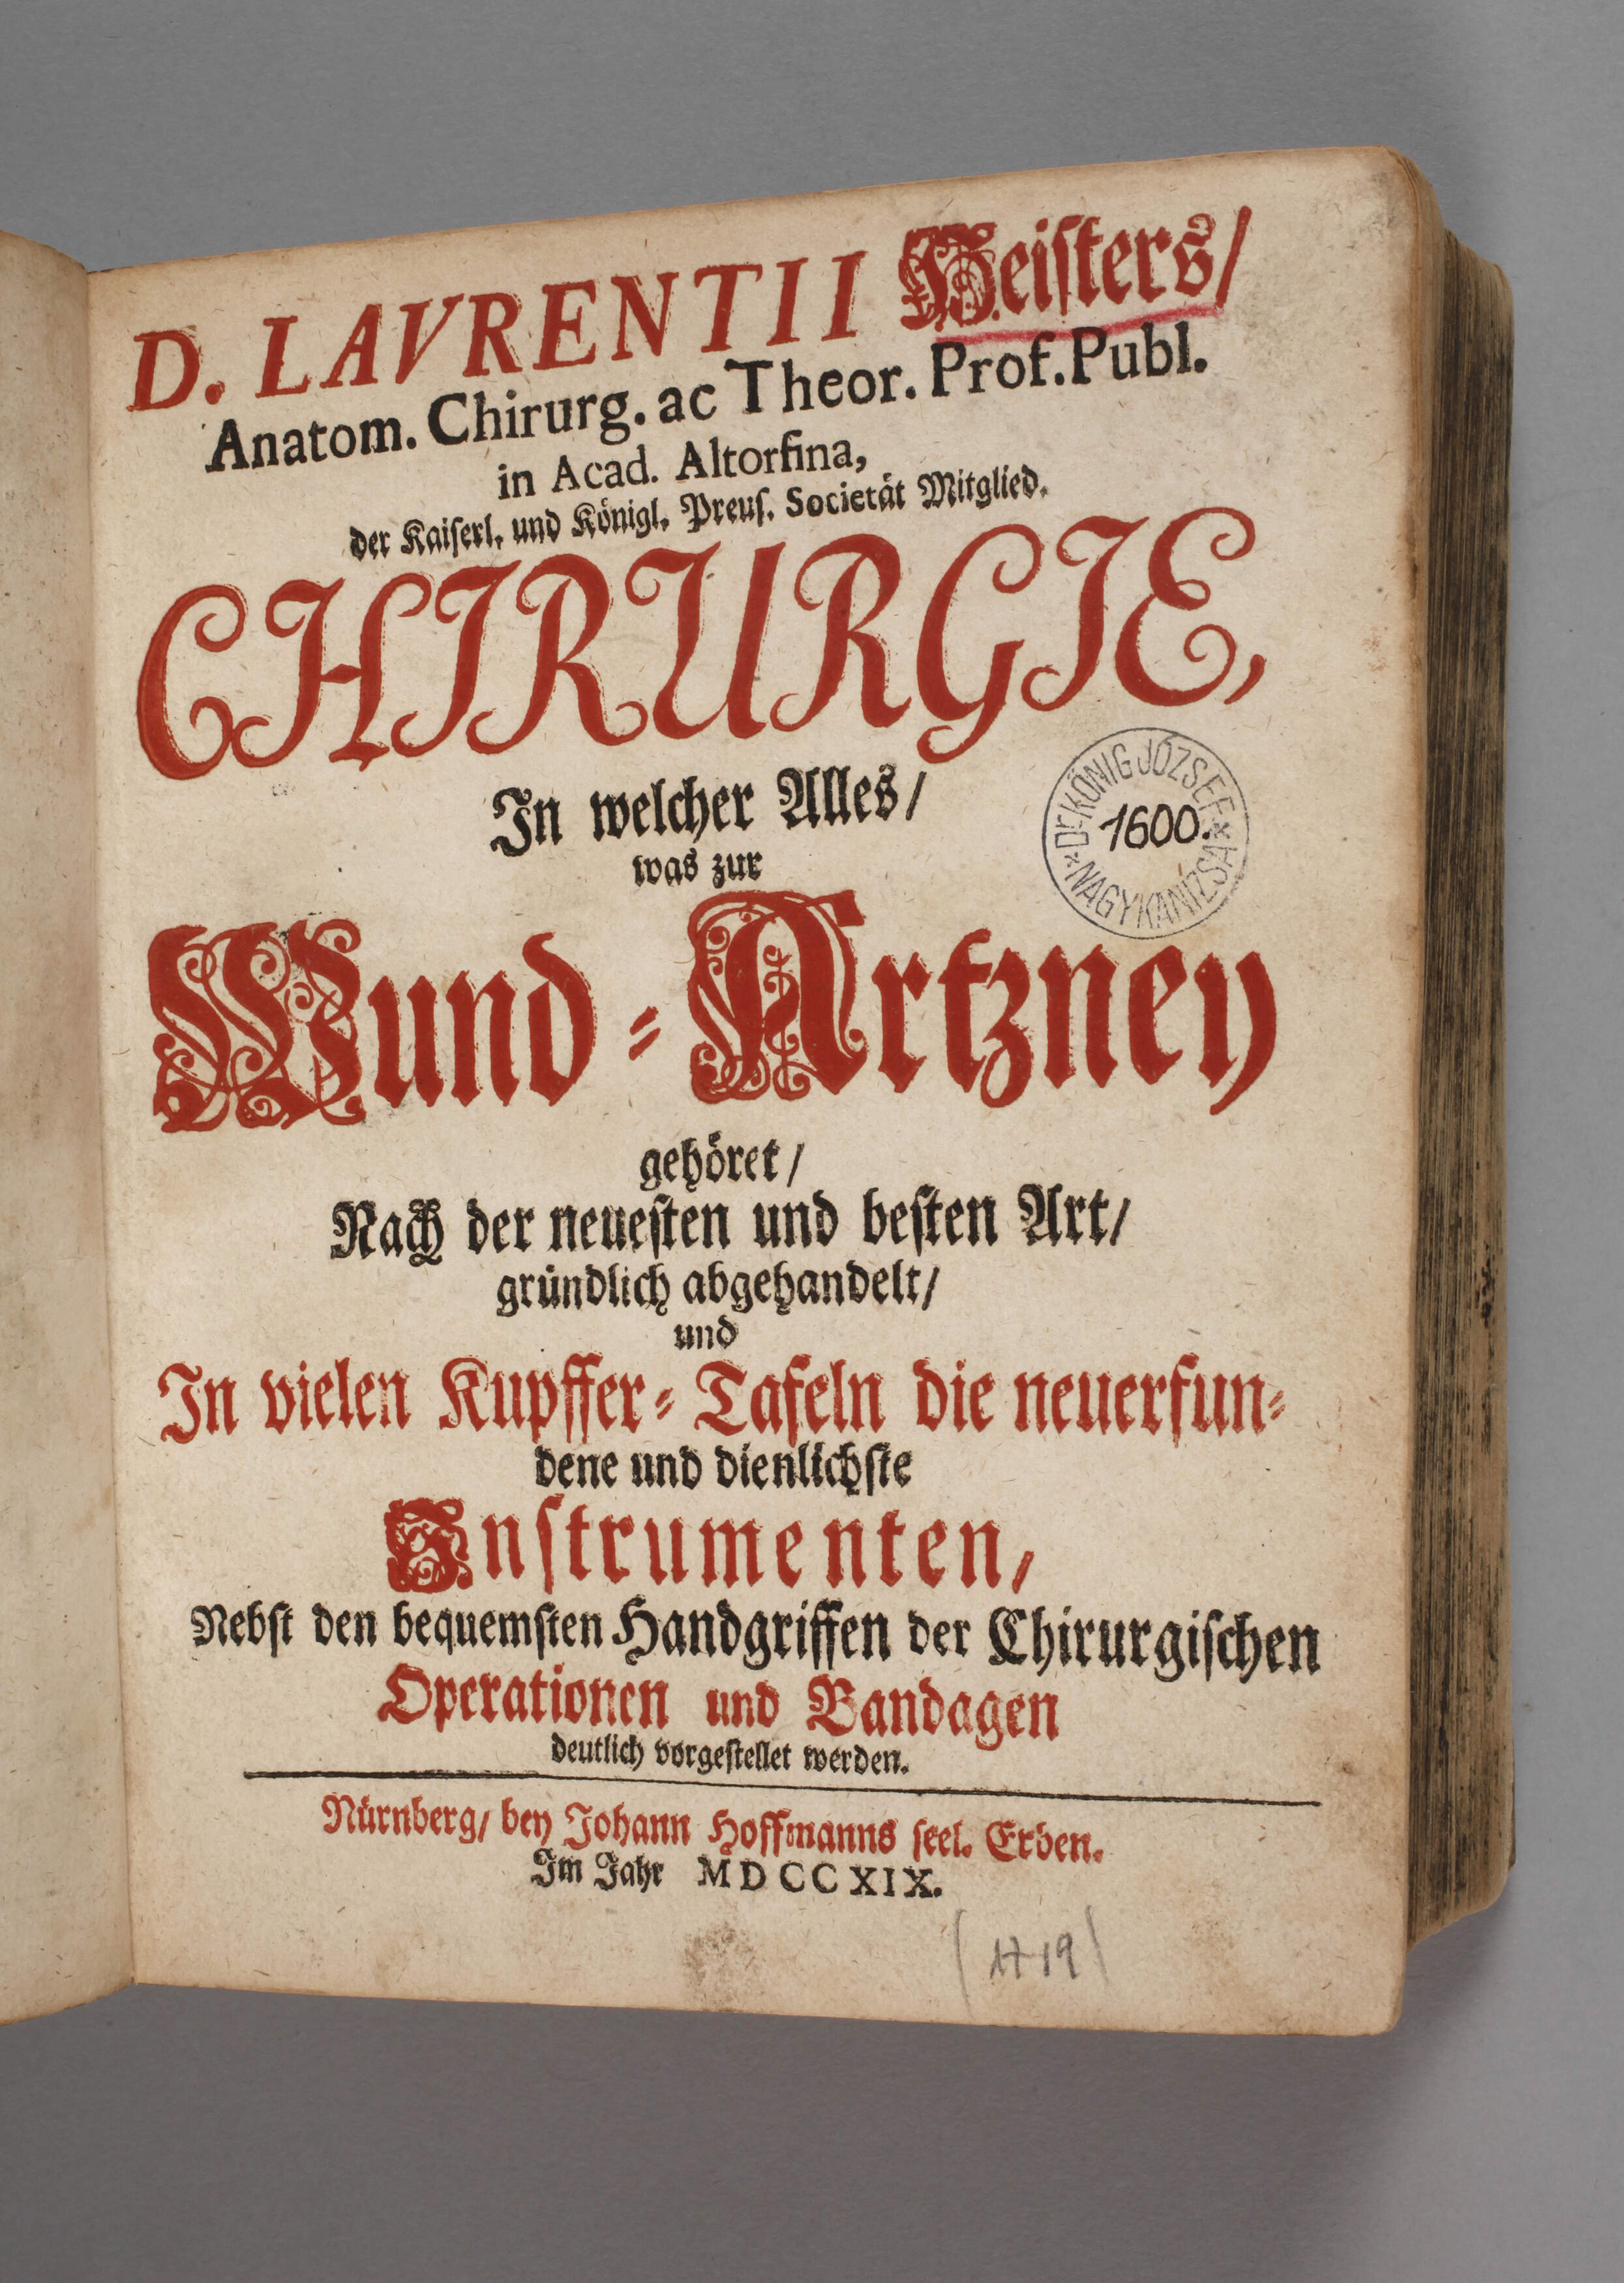 D. LAVRENTII Heisters/
Anatom. Chirurg. ac Theor. Prof. Publ.
in Acad. Altorfina,
der Kaiserl. und Königl. Preus. Societät Mitglied.
CHIRURGIE,
In welcher Alles/
was zur
Dr. KÖNIG JÓZSEF * NAGYKANIZSA *
1600.
Wund-Artzney
gehöret/
Nach der neuesten und besten Art/
gründlich abgehandelt/
und
In vielen Kupffer-Tafeln die neuerfun-
dene und dienlichste
Instrumenten,
Nebst den bequemsten Handgriffen der Chirurgischen
Operationen und Bandagen
deutlich vorgestellet werden.
Nürnberg/ bey Johann Hoffmanns seel. Erben.
Im Jahr MDCCXIX.
(1719)